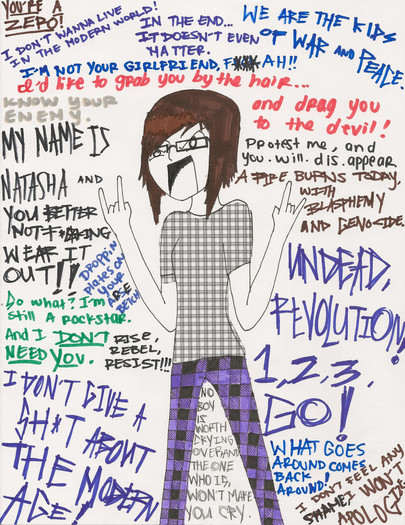 YOU'RE A
ZERO!
I DON'T WANNA LIVE
IN THE MODERN WORLD!
IN THE END...
IT DOESN'T EVEN
MATTER.
WE ARE THE KIDS
OF WAR AND PEACE.
I'M NOT YOUR GIRLFRIEND, F***AH!!
I'd like to grab you by the hair...
and drag you
to the devil!
KNOW YOUR
ENEMY.
Protest me, and
you. will. dis. appear
A FIRE BURNS TODAY,
WITH
BLASPHEMY
AND GENOCIDE.
MY NAME IS
NATASHA AND
YOU BETTER
NOT F*CKING
WEAR IT
OUT!!
DROPPIN
plates ON
YOUR
BETCH!
UNDEAD,
REVOLUTION!
1, 2, 3,
GO!
Do what? I'm
still A ROCKSTAR.
And I DON'T
NEED YOU.
RISE,
REBEL,
RESIST!!!
I DON'T GIVE A
SH*T ABOUT
THE MODERN
AGE!
NO
BOY
IS
WORTH
CRYING
OVER AND
THE ONE
WHO IS,
WON'T MAKE
YOU CRY.
WHAT GOES
AROUND COMES
BACK
AROUND!
I DON'T FEEL ANY
SHAME, I WON'T